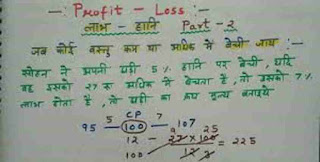 -: Profit - Loss :-
लाभ - हानि Part - 2
जब कोई वस्तु कम या अधिक में बेची जाय :-
सोहन ने अपनी घड़ी 5 % हानि पर बेची, यदि
वह उसको 27 रु अधिक में बेचता है, तो उसको 7%
लाभ होता है, तो घड़ी का क्रय मूल्य बताइये
CP
95 5 100 7 107 25
12 — 27 × 100 = 225
100 12 3